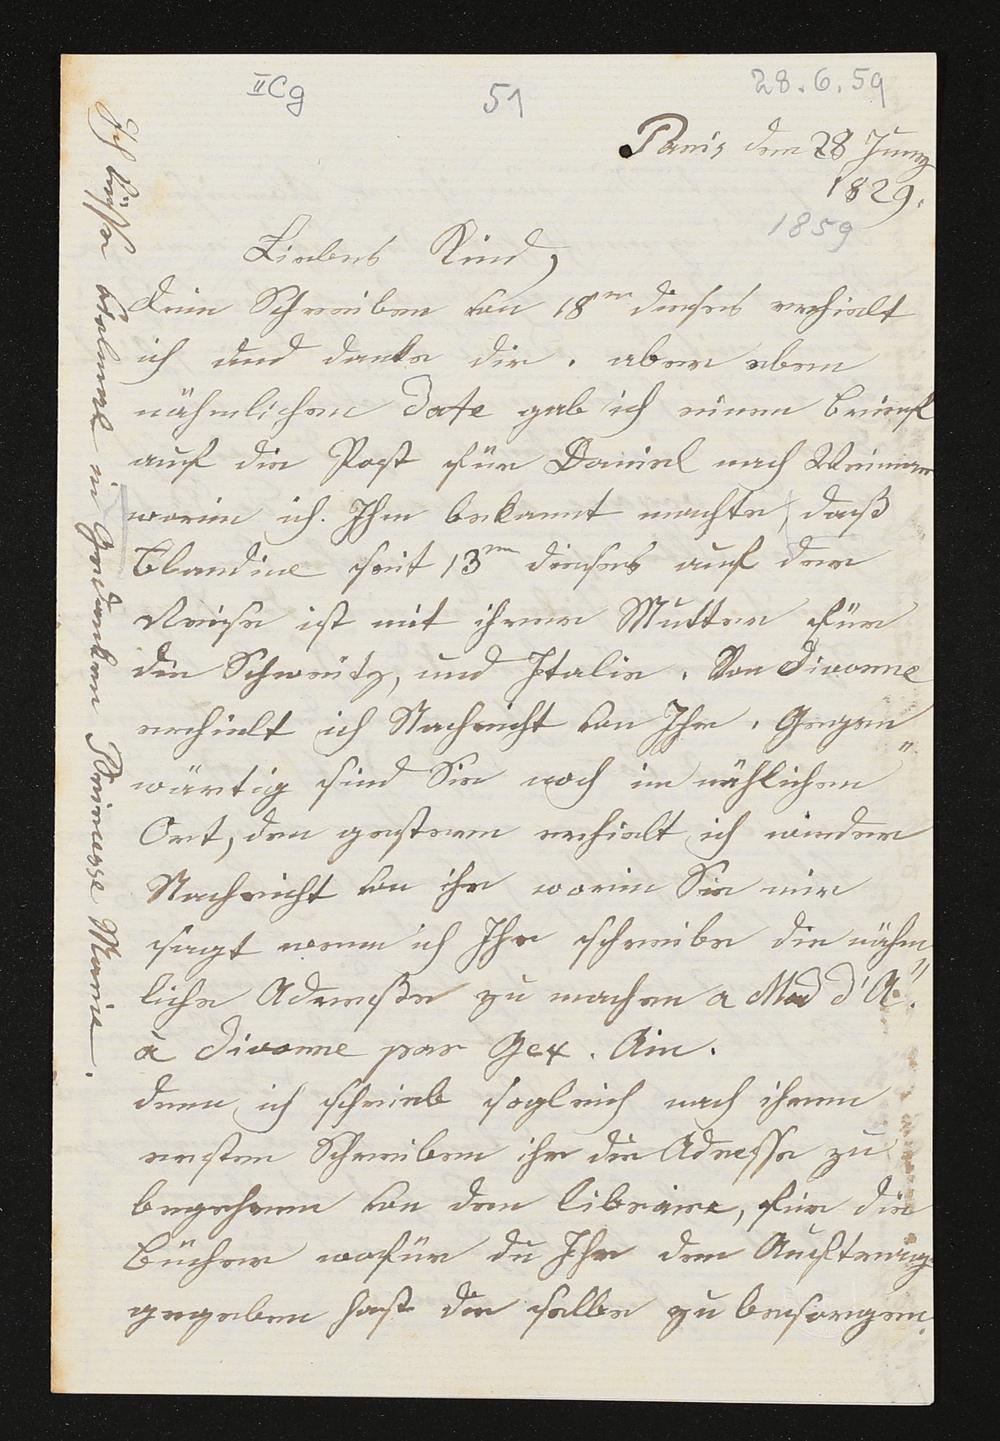 IICg
51
28.6.59
Paris den 28 Juny
1829.
1859
Liebes Kind,
dein Schreiben von 18ten dieses erhielt
ich und danke dir. aber eben
nähmlichen Date gab ich einen Brief
auf die Post für Daniel nach Weimar
worin ich. Ihm bekannt machte, daß
Blandine seit 13ten dieses auf der
Reise ist mit ihrer Mutter für
die Schweitz, und Italie. Von Divonne
erhielt ich Nachricht von Ihr. Gegen"
wärtig sind Sie noch im nählichen
Ort, den gestern erhielt ich wieder
Nachricht von ihr worin Sie mir
sagt wenn ich Ihr schreibe die nähm"
liche Adreße zu machen a Mad d'A".
à Divonne par Gex. Ain.
denn ich schrieb sogleich nach ihrem
ersten Schreiben ihr die Adresse zu
begehren von dem libraire, für die
Bücher wofür du Ihr den Auftrag
gegeben hast die selbe zu besorgen.
Ich küsse 1000mal in Gedanken Princesse Marie.